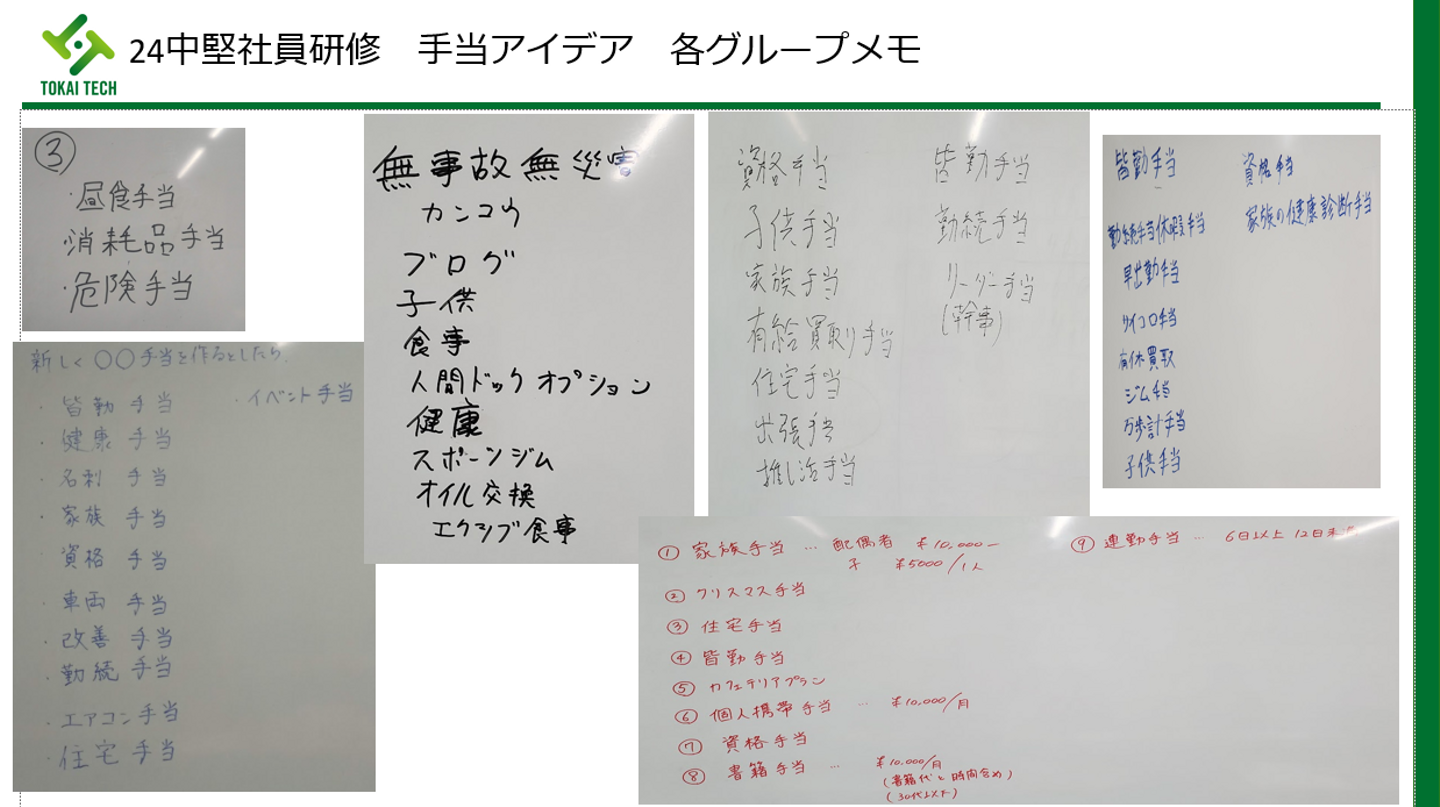 24中堅社員研修　手当アイデア　各グループメモ
TOKAI TECH
③
・昼食手当
・消耗品手当
・危険手当
無事故無災害
カンコウ
ブログ
子供
食事
人間ドック オプション
健康
スポーツジム
オイル交換
エクシブ食事
資格手当
子供手当
家族手当
有給買取り手当
住宅手当
出張手当
推し活手当
皆勤手当
勤続手当
リーダー手当
(幹事)
皆勤手当
勤続手当休暇手当
早出勤手当
サイコロ手当
有休買取
ジム手当
万歩計手当
子供手当
資格手当
家族の健康診断手当
新しく〇〇手当を作るとしたら
・皆勤 手当
・健康 手当
・名刺 手当
・家族 手当
・資格 手当
・車両 手当
・改善 手当
・勤続 手当
・エアコン手当
・住宅 手当
・イベント手当
① 家族手当 … 配偶者 ¥10,000-
子 ¥5000/1人
② クリスマス手当
③ 住宅手当
④ 皆勤手当
⑤ カフェテリアプラン
⑥ 個人携帯手当 … ¥10,000/月
⑦ 資格手当
⑧ 書籍手当 … ¥10,000/月
(書籍代と時間含め)
(30代以下)
⑨ 連勤手当 … 6日以上 12日未満